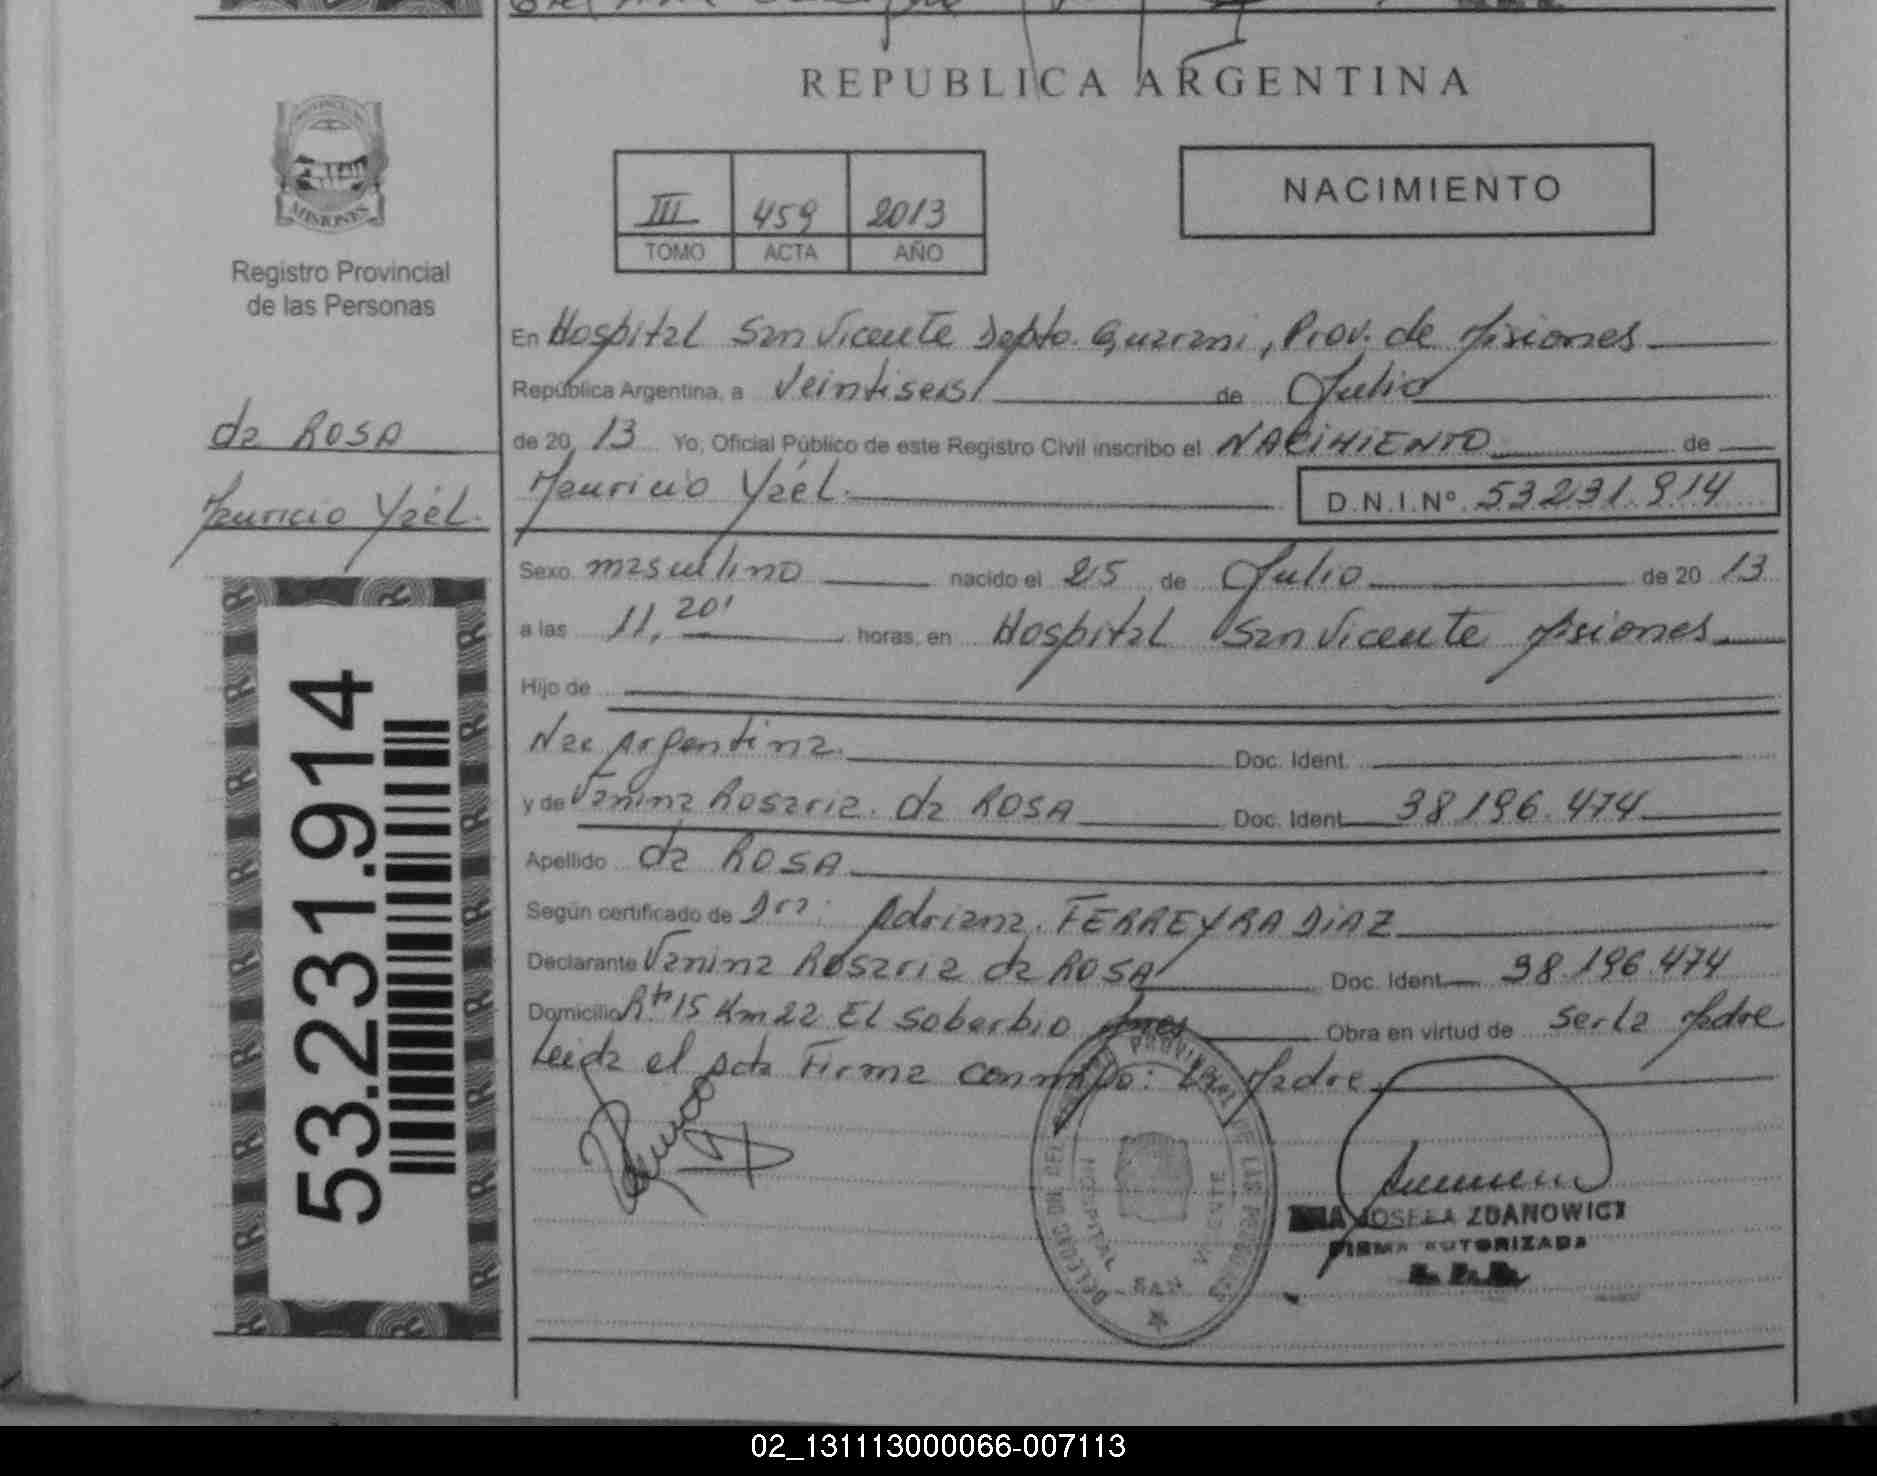 REPUBLICA ARGENTINA
PROVINCIA DE
MISIONES
Registro Provincial
de las Personas
III 459 2013
TOMO ACTA AÑO
NACIMIENTO
En Hospital San Vicente Depto. Guarani, Prov. de Misiones
República Argentina, a Veintiseis de Julio
de 20 13 Yo, Oficial Público de este Registro Civil inscribo el NACIMIENTO de
Mauricio Yaél. D.N.I.Nº 53231.914
da ROSA
Mauricio Yaél.
Sexo masculino nacido el 25 de Julio de 20 13
a las 11,20' horas, en Hospital San Vicente Misiones
Hijo de
Nac Argentina. Doc. Ident.
y de Vanina Rosaria. da ROSA Doc. Ident. 38196.474
Apellido da ROSA
Según certificado de Dra: Adriana. FERREYRA DIAZ
Declarante Vanina Rosaria da ROSA Doc. Ident. 38.196.474
Domicilio Rta 15 Km 22 El Soberbio Mnes Obra en virtud de ser la Madre
Leida el acta Firma conmigo: La Madre
53.231.914
DELEGAC ON. DEL PROVINCIAL DE LAS PERSONAS
HOSPITAL SAN VICENTE
JOSEFA ZDANOWICZ
FIRMA AUTORIZADA
02_131113000066-007113